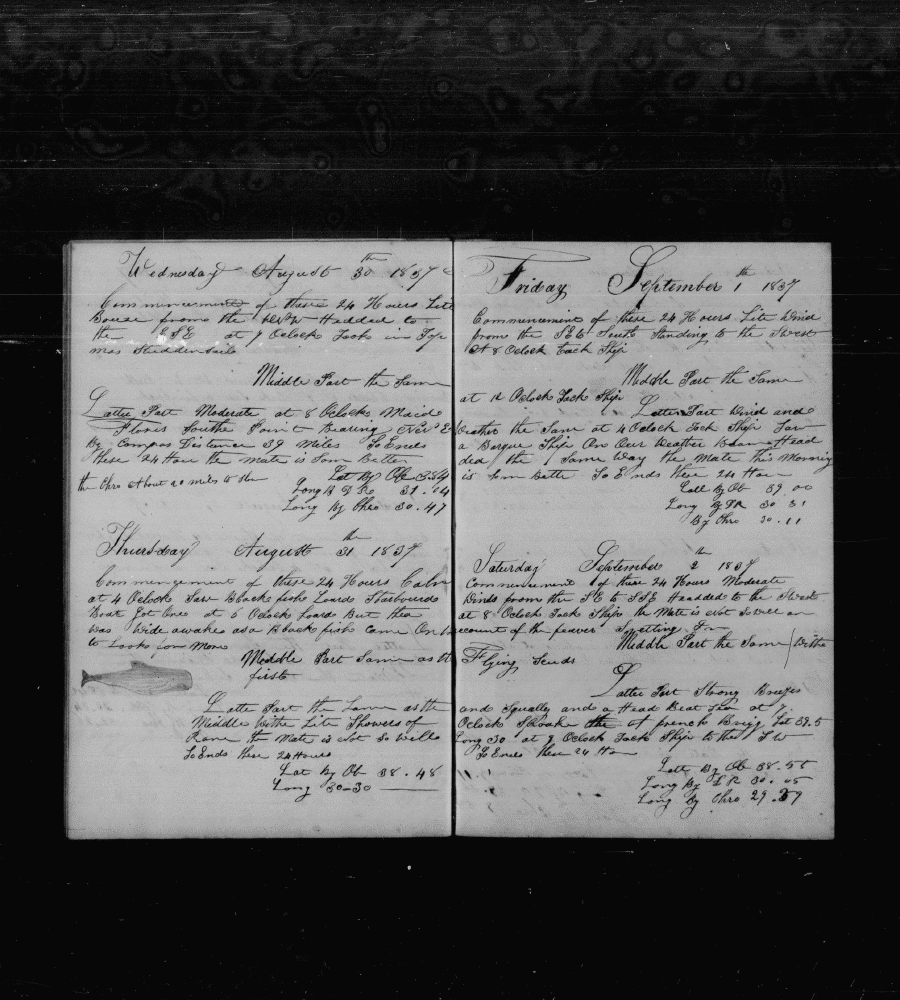 Wednesday August 30th 1837
Commencement of these 24 Hours Lite
from the Headded to
the ESE at 7 Oclock Took in Top
mas Studdensails
Middle Part the Same
Latter Part Moderate at 8 Oclock Maid
Flores Southe Point Bearing
By Compas Distance 39 Miles So Ends
these 24 Hour the mate is Som Better
the Chro about 20 miles to the
Lat By Ob
Long B D Re 31.04
Long By Chro 30.47
Thursday August 31th 1837
Commencement of these 24 Hours Calm
at 4 Oclock Saw Black fish Loard Starbourd
Boat Got One at 6 Oclock Loard But thea
Was Wide awake as a Black fish Came On
to Looke for More
Meddle Part Same as the
first
Latter Part the Same as the
Middle Withe Lite Showers of
Rane the Mate is Not So Well
So Ends these 24 Hours
Lat By Ob 38.48
Long 30-30
Friday September 1th 1837
Commencement of these 24 Hours Lite Wind
from the SE to South Standing to the Swest
At 8 Oclock tack Ship
Middle Part the Same
at 12 Oclock Tack Ship
Latter Part Wind and
Weather the Same at 4 Oclock Tack Ship Saw
a Barque Ship On Our Weather Beam Head
ded the Same Way the Mate this Morning
is Som Bette So Ends these 24 Hour
Latt By Ob 39.00
Long By DR 30 31
By Chro 30.11
Saturday September 2th 1837
Commencement of these 24 Hours Moderate
Winds from the SE to SSE Headded to the Swest
at 8 Oclock Tack Ship the Mate is Not So Well on
account of the feaver Setting In
Middle Part the Same Withe
Flying Scuds
Latter Part Strong Breezes
and Squally and a Head Beat Sea at 7
Oclock Spoake the at french Brig Lat 39.5
Long 30 at 9 Oclock Tack Ship to the SW
So Ends these 24 Hour
Latt By Ob 38.55
Long By DR 30.05
Long By Chro 29.59